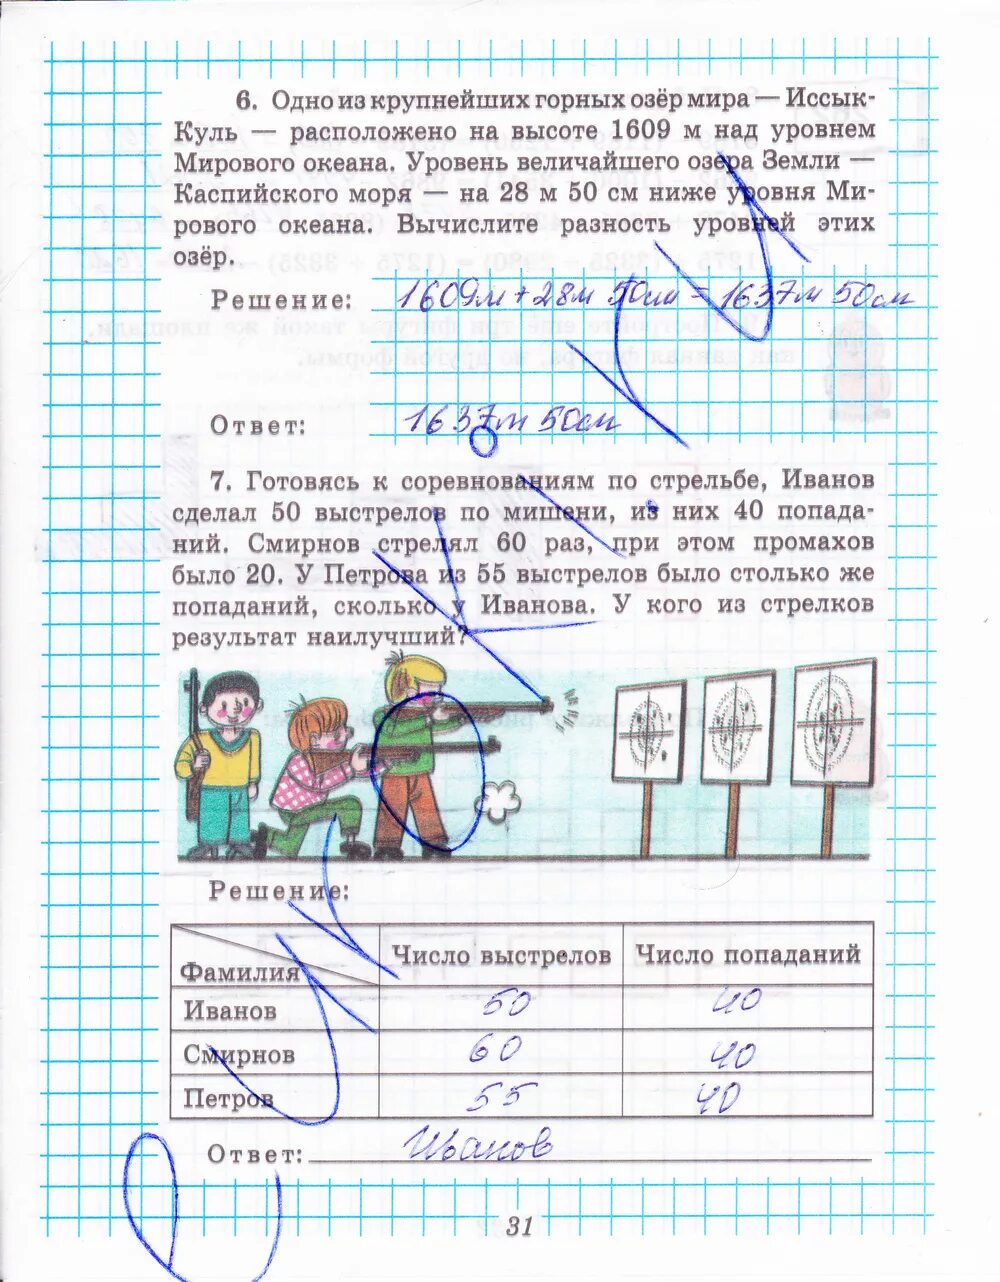 6. Одно из крупнейших горных озёр мира — Иссык-
Куль — расположено на высоте 1609 м над уровнем
Мирового океана. Уровень величайшего озера Земли —
Каспийского моря — на 28 м 50 см ниже уровня Ми-
рового океана. Вычислите разность уровней этих
озёр.
Решение: 1609м + 28м 50см = 1637м 50см
Ответ: 1637м 50см
7. Готовясь к соревнованиям по стрельбе, Иванов
сделал 50 выстрелов по мишени, из них 40 попада-
ний. Смирнов стрелял 60 раз, при этом промахов
было 20. У Петрова из 55 выстрелов было столько же
попаданий, сколько у Иванова. У кого из стрелков
результат наилучший?
Решение:
Фамилия Число выстрелов Число попаданий
Иванов 50 40
Смирнов 60 40
Петров 55 40
Ответ: Иванов
31